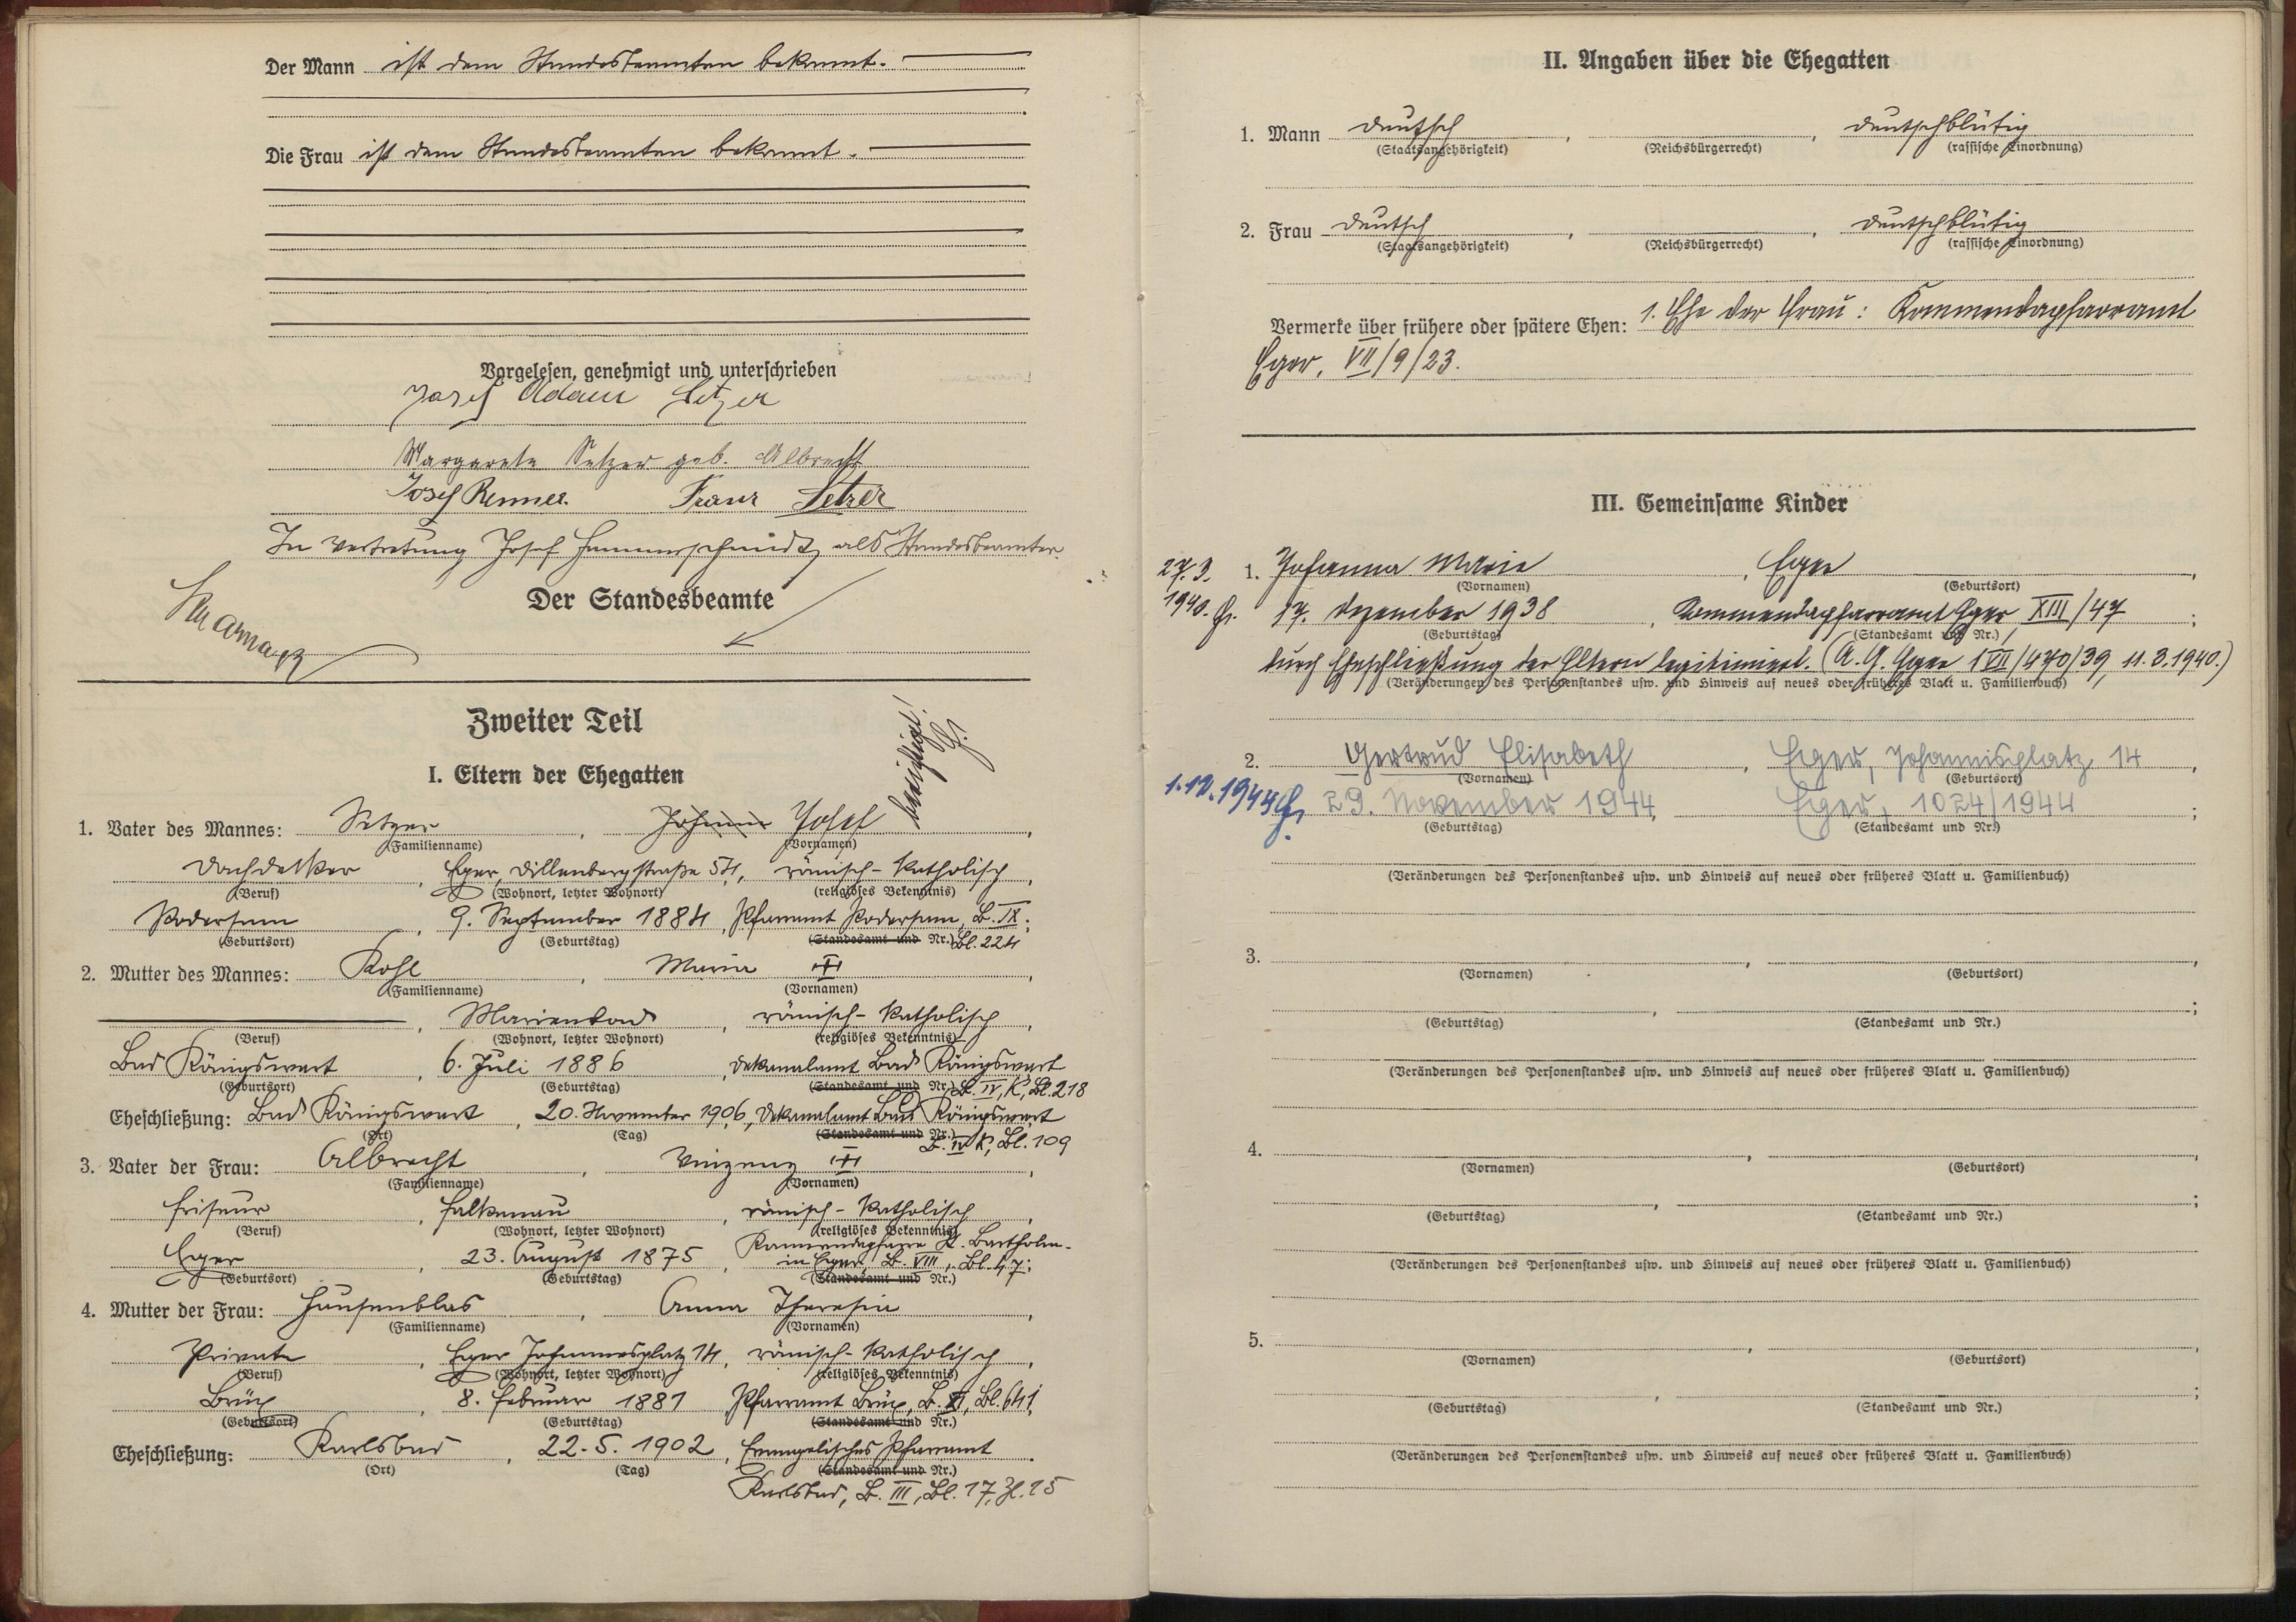 Der Mann ist dem Standesbeamten bekannt.
Die Frau ist dem Standesbeamten bekannt.
Vorgelesen, genehmigt und unterschrieben
Josef Adam Setzer
Margarete Setzer geb. Albrecht
Josef Renner. Franz Setzer
In Vertretung Josef Hammerschmidt, als Standesbeamter.
Der Standesbeamte
Zweiter Teil
berichtigt!
I. Eltern der Ehegatten
1. Vater des Mannes: Setzer, Johann Josef
(Familienname) (Vornamen)
Dachdecker, Eger, Dillenbergstraße 54, römisch-katholisch,
(Beruf) (Wohnort, letzter Wohnort) (religiöses Bekenntnis)
Podersam, 9. September 1884, Pfarramt Podersam, B. IX;
(Geburtsort) (Geburtstag) (Standesamt und Nr.) Bl. 224
2. Mutter des Mannes: Kohl, Maria
(Familienname) (Vornamen)
, Marienbad, römisch-katholisch,
(Beruf) (Wohnort, letzter Wohnort) (religiöses Bekenntnis)
Bad Königswart, 6. Juli 1886, Dekanalamt Bad Königswart
(Geburtsort) (Geburtstag) (Standesamt und Nr.) B. IV, K, Bl. 218
Eheschließung: Bad Königswart, 20. November 1906, Dekanalamt Bad Königswart
(Ort) (Tag) (Standesamt und Nr.)
B. IV K, Bl. 109
3. Vater der Frau: Albrecht, Vinzenz
(Familienname) (Vornamen)
Friseur, Falkenau, römisch-katholisch,
(Beruf) (Wohnort, letzter Wohnort) (religiöses Bekenntnis)
Kommendapfarre St. Bartholm.
Eger, 23. August 1875, in Eger, B. VIII, Bl. 47;
(Geburtsort) (Geburtstag) (Standesamt und Nr.)
4. Mutter der Frau: Hausenblas, Anna Theresia,
(Familienname) (Vornamen)
Private, Eger Johannesplatz 14, römisch-katholisch,
(Beruf) (Wohnort, letzter Wohnort) (religiöses Bekenntnis)
Brüx, 8. Februar 1881 Pfarramt Brüx, B. XI, Bl. 641;
(Geburtsort) (Geburtstag) (Standesamt und Nr.)
Eheschließung: Karlsbad, 22.5.1902, Evangelisches Pfarramt
(Ort) (Tag) (Standesamt und Nr.)
Karlsbad, B. III, Bl. 17, Zl. 15
II. Angaben über die Ehegatten
1. Mann deutsch, , deutschblütig
(Staatsangehörigkeit) (Reichsbürgerrecht) (rassische Einordnung)
2. Frau deutsch, , deutschblütig
(Staatsangehörigkeit) (Reichsbürgerrecht) (rassische Einordnung)
Vermerke über frühere oder spätere Ehen: 1. Ehe der Frau: Kommendapfarramt
Eger, VII/9/23.
III. Gemeinsame Kinder
27.3. 1. Johanna Marie, Eger,
(Vornamen) (Geburtsort)
1940. 17. Dezember 1938, Kommendapfarramt Eger XIII/47;
(Geburtstag) (Standesamt und Nr.)
durch Eheschließung der Eltern legitimiert. (A.G. Eger 1 VII/470/39, 11.3.1940.)
(Veränderungen des Personenstandes usw. und Hinweis auf neues oder früheres Blatt u. Familienbuch)
2. Gertrud Elisabeth, Eger, Johannisplatz 14,
(Vornamen) (Geburtsort)
1.12.1944 29. November 1944, Eger, 1024/1944;
(Geburtstag) (Standesamt und Nr.)
(Veränderungen des Personenstandes usw. und Hinweis auf neues oder früheres Blatt u. Familienbuch)
3. , ,
(Vornamen) (Geburtsort)
, ;
(Geburtstag) (Standesamt und Nr.)
(Veränderungen des Personenstandes usw. und Hinweis auf neues oder früheres Blatt u. Familienbuch)
4. , ,
(Vornamen) (Geburtsort)
, ;
(Geburtstag) (Standesamt und Nr.)
(Veränderungen des Personenstandes usw. und Hinweis auf neues oder früheres Blatt u. Familienbuch)
5. , ,
(Vornamen) (Geburtsort)
, ;
(Geburtstag) (Standesamt und Nr.)
(Veränderungen des Personenstandes usw. und Hinweis auf neues oder früheres Blatt u. Familienbuch)